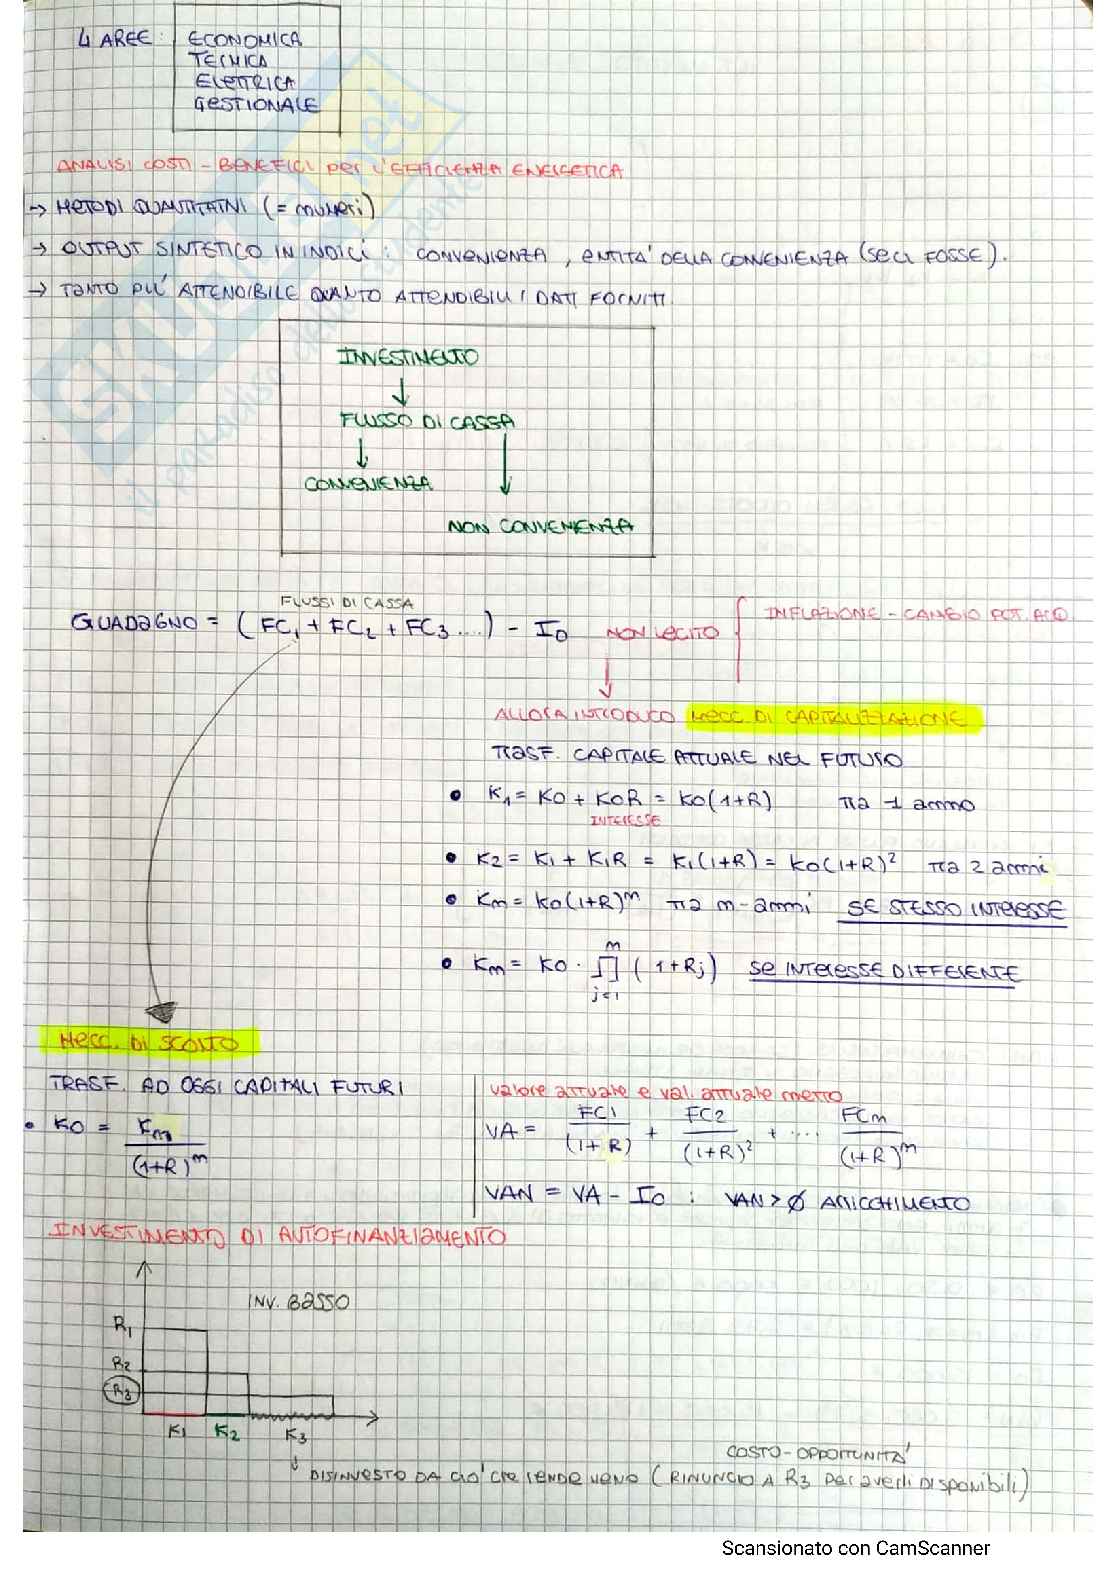 4 AREE: ECONOMICA
TECNICA
ELETTRICA
GESTIONALE
ANALISI COSTI - BENEFICI per L'EFFICIENZA ENERGETICA
→ METODI QUANTITATIVI (= numeri)
→ OUTPUT SINTETICO IN INDICI: CONVENIENZA, ENTITA' DELLA CONVENIENZA (SE CI FOSSE).
→ TANTO PIU' ATTENDIBILE QUANTO ATTENDIBILI I DATI FORNITI.
INVESTIMENTO
↓
FLUSSO DI CASSA
↓ ↓
CONVENIENZA
NON CONVENIENZA
FLUSSI DI CASSA
GUADAGNO = (FC1 + FC2 + FC3 ...) - I0 NON LECITO
INFLAZIONE - CAMBIO POT. ACQ
ALLORA INTRODUCO MECC. DI CAPITALIZZAZIONE
TRASF. CAPITALE ATTUALE NEL FUTURO
• K1 = K0 + K0R = K0(1+R) TRA 1 anno
INTERESSE
• K2 = K1 + K1R = K1(1+R) = K0(1+R)² TRA 2 anni
• Km = K0(1+R)^m TRA m-anni SE STESSO INTERESSE
• Km = K0 · ∏_{j=1}^{m} (1+Rj) SE INTERESSE DIFFERENTE
MECC. DI SCONTO
TRASF. AD OGGI CAPITALI FUTURI
• K0 = Km / (1+R)^m
Valore attuale e val. attuale netto
VA = FC1 / (1+R) + FC2 / (1+R)² + ... FCm / (1+R)^m
VAN = VA - I0 : VAN > Ø ARRICCHIMENTO
INVESTIMENTO DI AUTOFINANZIAMENTO
INV. BASSO
R1
R2
R3
K1 K2 K3
COSTO-OPPORTUNITA'
↓ DISINVESTO DA CIO' CHE RENDE MENO (RINUNCIO A R3 per averli disponibili)
SKUOLA.net
il paradiso dello studente
Scansionato con CamScanner